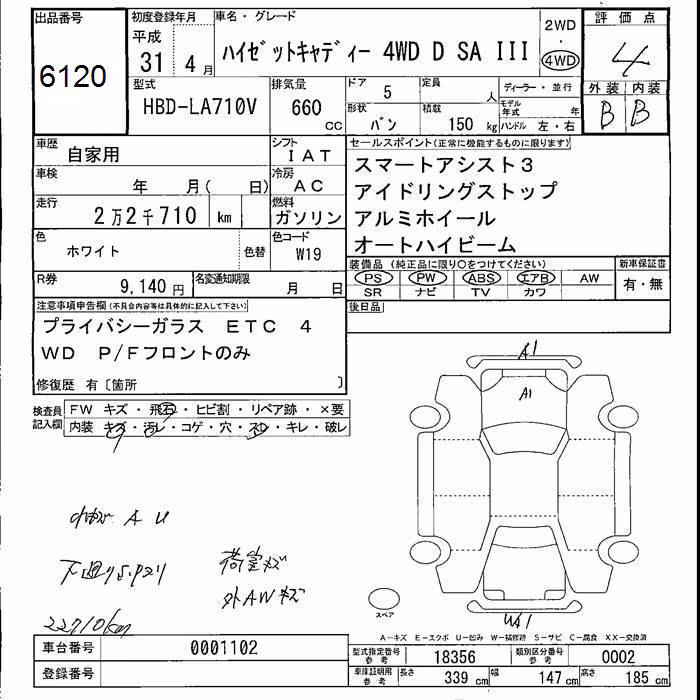 出品番号
6120
初度登録年月
平成
31 4月
車名・グレード
ハイゼットキャディー 4WD D SA III
2WD
・
4WD
評価点
4
外装 内装
B B
型式
HBD-LA710V
排気量
660
cc
ドア
5
定員
人
形状
バン
積載
150 kg
ディーラー・並行
モデル年式 年
ハンドル 左・右
車歴
自家用
シフト
IAT
車検
年 月( 日)
冷房
AC
走行
2万2千710 km
燃料
ガソリン
色
ホワイト
色替
色コード
W19
R券
9,140円
名変通知期限
月 日
セールスポイント(正常に機能するものに限ります)
スマートアシスト3
アイドリングストップ
アルミホイール
オートハイビーム
装備品(純正品に限り○をつけてください)
PS PW ABS エアB AW
SR ナビ TV カワ
新車保証書
有・無
後日品
注意事項申告欄(不具合内容等は具体的に記入して下さい)
プライバシーガラス ETC 4
WD P/Fフロントのみ
修復歴 有〔箇所 〕
検査員
記入欄
FW キズ・飛石・ヒビ割・リペア跡・×要
内装 キズ・汚レ・コゲ・穴・スレ・キレ・破レ
A1
A1
A U
下廻り
荷室キズ
外AWキズ
22710km
スペア
A-キズ E-エクボ U-凹み W-補修跡 S-サビ C-腐食 XX-交換済
車台番号
0001102
登録番号
型式指定番号
参考
18356
類別区分番号
参考
0002
車庫証明用
参考
長さ
339 cm
幅
147 cm
高さ
185 cm